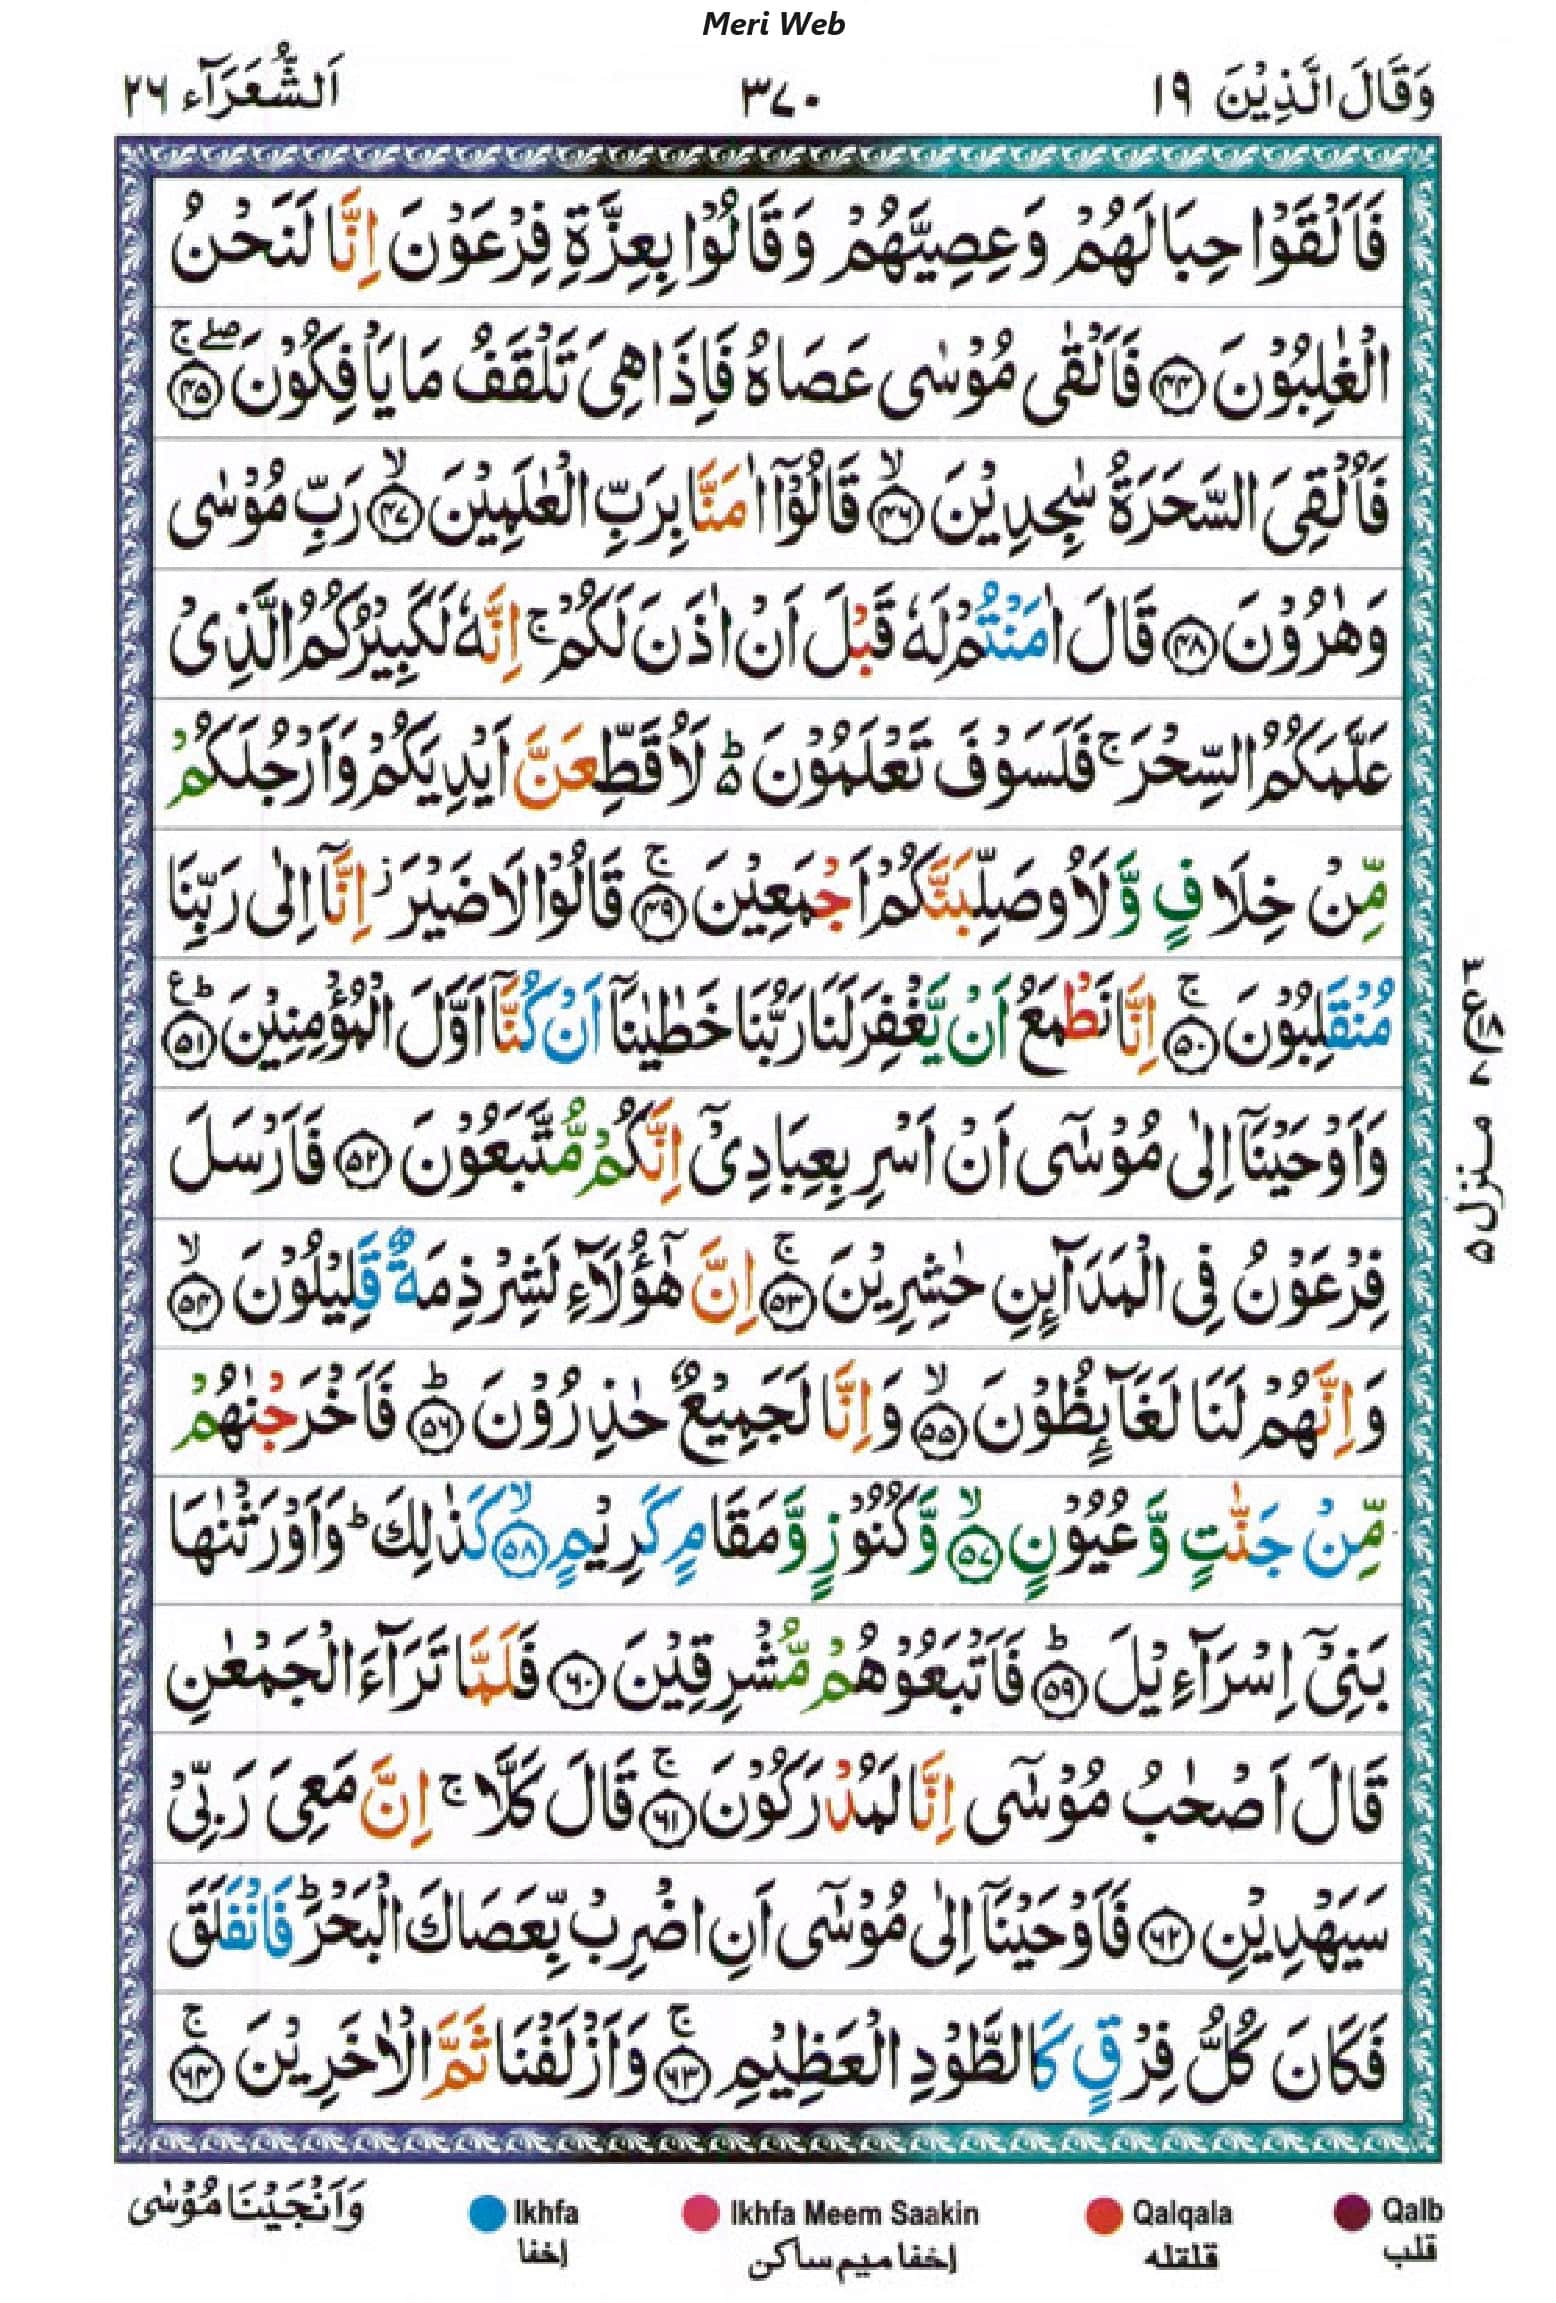 Meri Web
وَقَالَ الَّذِيْنَ ١٩ ٣٧٠ اَلشُّعَرَآء ٢٦
فَاَلْقَوْا حِبَالَهُمْ وَعِصِيَّهُمْ وَقَالُوْا بِعِزَّةِ فِرْعَوْنَ اِنَّا لَنَحْنُ
الْغٰلِبُوْنَ ﴿۴۴﴾ فَاَلْقٰى مُوْسٰى عَصَاهُ فَاِذَا هِىَ تَلْقَفُ مَا يَاْفِكُوْنَ ۖۚ ﴿۴۵﴾
فَاُلْقِىَ السَّحَرَةُ سٰجِدِيْنَ ۙ ﴿۴۶﴾ قَالُوْۤا اٰمَنَّا بِرَبِّ الْعٰلَمِيْنَ ۙ ﴿۴۷﴾ رَبِّ مُوْسٰى
وَهٰرُوْنَ ﴿۴۸﴾ قَالَ اٰمَنْتُمْ لَهٗ قَبْلَ اَنْ اٰذَنَ لَكُمْ ۚ اِنَّهٗ لَكَبِيْرُكُمُ الَّذِىْ
عَلَّمَكُمُ السِّحْرَ ۚ فَلَسَوْفَ تَعْلَمُوْنَ ۵ؕ لَاُقَطِّعَنَّ اَيْدِيَكُمْ وَاَرْجُلَكُمْ
مِّنْ خِلَافٍ وَّلَاُوصَلِّبَنَّكُمْ اَجْمَعِيْنَ ۚ ﴿۴۹﴾ قَالُوْا لَا ضَيْرَ ؗ اِنَّاۤ اِلٰى رَبِّنَا
مُنْقَلِبُوْنَ ۚ ﴿۵۰﴾ اِنَّا نَطْمَعُ اَنْ يَّغْفِرَ لَنَا رَبُّنَا خَطٰيٰنَاۤ اَنْ كُنَّاۤ اَوَّلَ الْمُؤْمِنِيْنَ ؕع ﴿۵۱﴾
وَاَوْحَيْنَاۤ اِلٰى مُوْسٰٓى اَنْ اَسْرِ بِعِبَادِىْۤ اِنَّكُمْ مُّتَّبَعُوْنَ ﴿۵۲﴾ فَاَرْسَلَ
فِرْعَوْنُ فِى الْمَدَآئِنِ حٰشِرِيْنَ ۚ ﴿۵۳﴾ اِنَّ هٰٓؤُلَآءِ لَشِرْذِمَةٌ قَلِيْلُوْنَ ۙ ﴿۵۴﴾
وَاِنَّهُمْ لَنَا لَغَآئِظُوْنَ ۙ ﴿۵۵﴾ وَاِنَّا لَجَمِيْعٌ حٰذِرُوْنَ ؕ ﴿۵۶﴾ فَاَخْرَجْنٰهُمْ
مِّنْ جَنّٰتٍ وَّعُيُوْنٍ ۙ ﴿۵۷﴾ وَّكُنُوْزٍ وَّمَقَامٍ كَرِيْمٍ ۙ ﴿۵۸﴾ كَذٰلِكَ ؕ وَاَوْرَثْنٰهَا
بَنِىْۤ اِسْرَآءِيْلَ ؕ ﴿۵۹﴾ فَاَتْبَعُوْهُمْ مُّشْرِقِيْنَ ﴿۶۰﴾ فَلَمَّا تَرَآءَ الْجَمْعٰنِ
قَالَ اَصْحٰبُ مُوْسٰٓى اِنَّا لَمُدْرَكُوْنَ ۚ ﴿۶۱﴾ قَالَ كَلَّا ۚ اِنَّ مَعِىَ رَبِّىْ
سَيَهْدِيْنِ ﴿۶۲﴾ فَاَوْحَيْنَاۤ اِلٰى مُوْسٰٓى اَنِ اضْرِبْ بِّعَصَاكَ الْبَحْرَ ؕ فَانْفَلَقَ
فَكَانَ كُلُّ فِرْقٍ كَالطَّوْدِ الْعَظِيْمِ ۚ ﴿۶۳﴾ وَاَزْلَفْنَا ثَمَّ الْاٰخَرِيْنَ ۚ ﴿۶۴﴾
٣ع١٨ ٧
منزل ۵
وَاَنْجَيْنَا مُوْسٰى
Ikhfa Ikhfa Meem Saakin Qalqala Qalb
إخفا إخفا ميم ساكن قلقله قلب